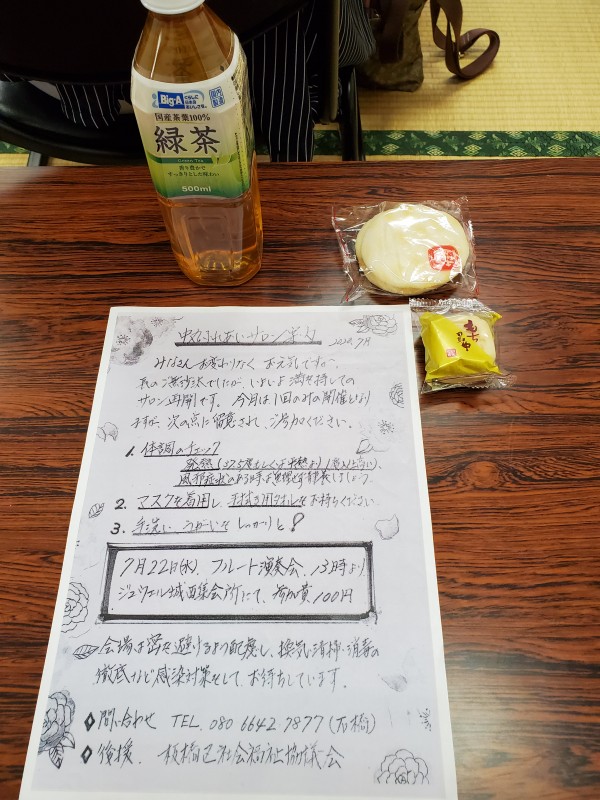 Big-A
国産茶葉100%
緑茶
Green Tea
香り豊かで
すっきりとした味わい
500ml
2020,7月
みなさんお変わりなくお元気ですか。
サロン再開です。今月は1回のみの開催となり
ますが、次の点に留意され、ご参加ください。
1. 体調のチェック
発熱(37.5度もしくは平熱より1度以上高い)、
風邪症状のある時は無理せず静養しましょう。
2. マスクを着用し、手拭き用タオルをお持ちください。
3. 手洗い うがいをしっかりと!
7月22日(水)、フルート演奏会、13時より
ジュウェル城西集会所にて、参加費100円
会場は密を避けるよう配慮し、換気・清掃・消毒の
徹底など感染対策をして、お待ちしています。
◆問い合わせ TEL. 080 6642 7877 (石橋)
◆後援. 板橋区社会福祉協議会